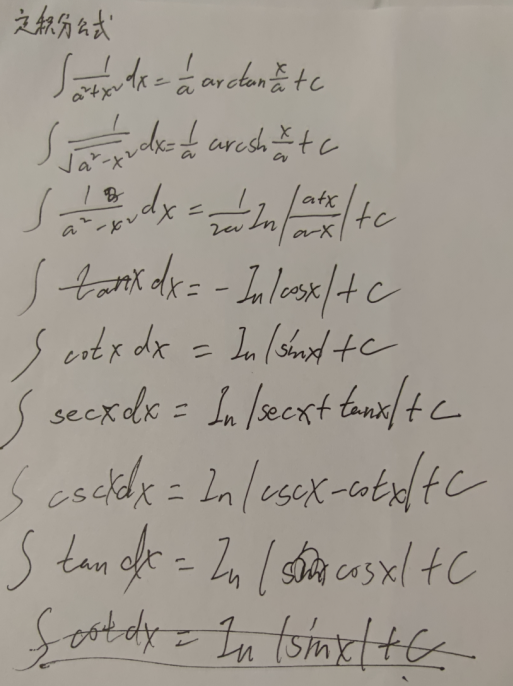 定积分公式
∫ 1/(a²+x²) dx = 1/a arctan x/a + c
∫ 1/√(a²-x²) dx = 1/a arcsh x/a + c
∫ 1/(a²-x²) dx = 1/2a In |(a+x)/(a-x)| + c
∫ tanx dx = - In |cosx| + C
∫ cotx dx = In |sinx| + C
∫ secx dx = In |secx + tanx| + C
∫ cscxdx = In |cscx - cotx| + C
∫ tan dx = In | cosx| + C
∫ cot dx = In |sinx| + C